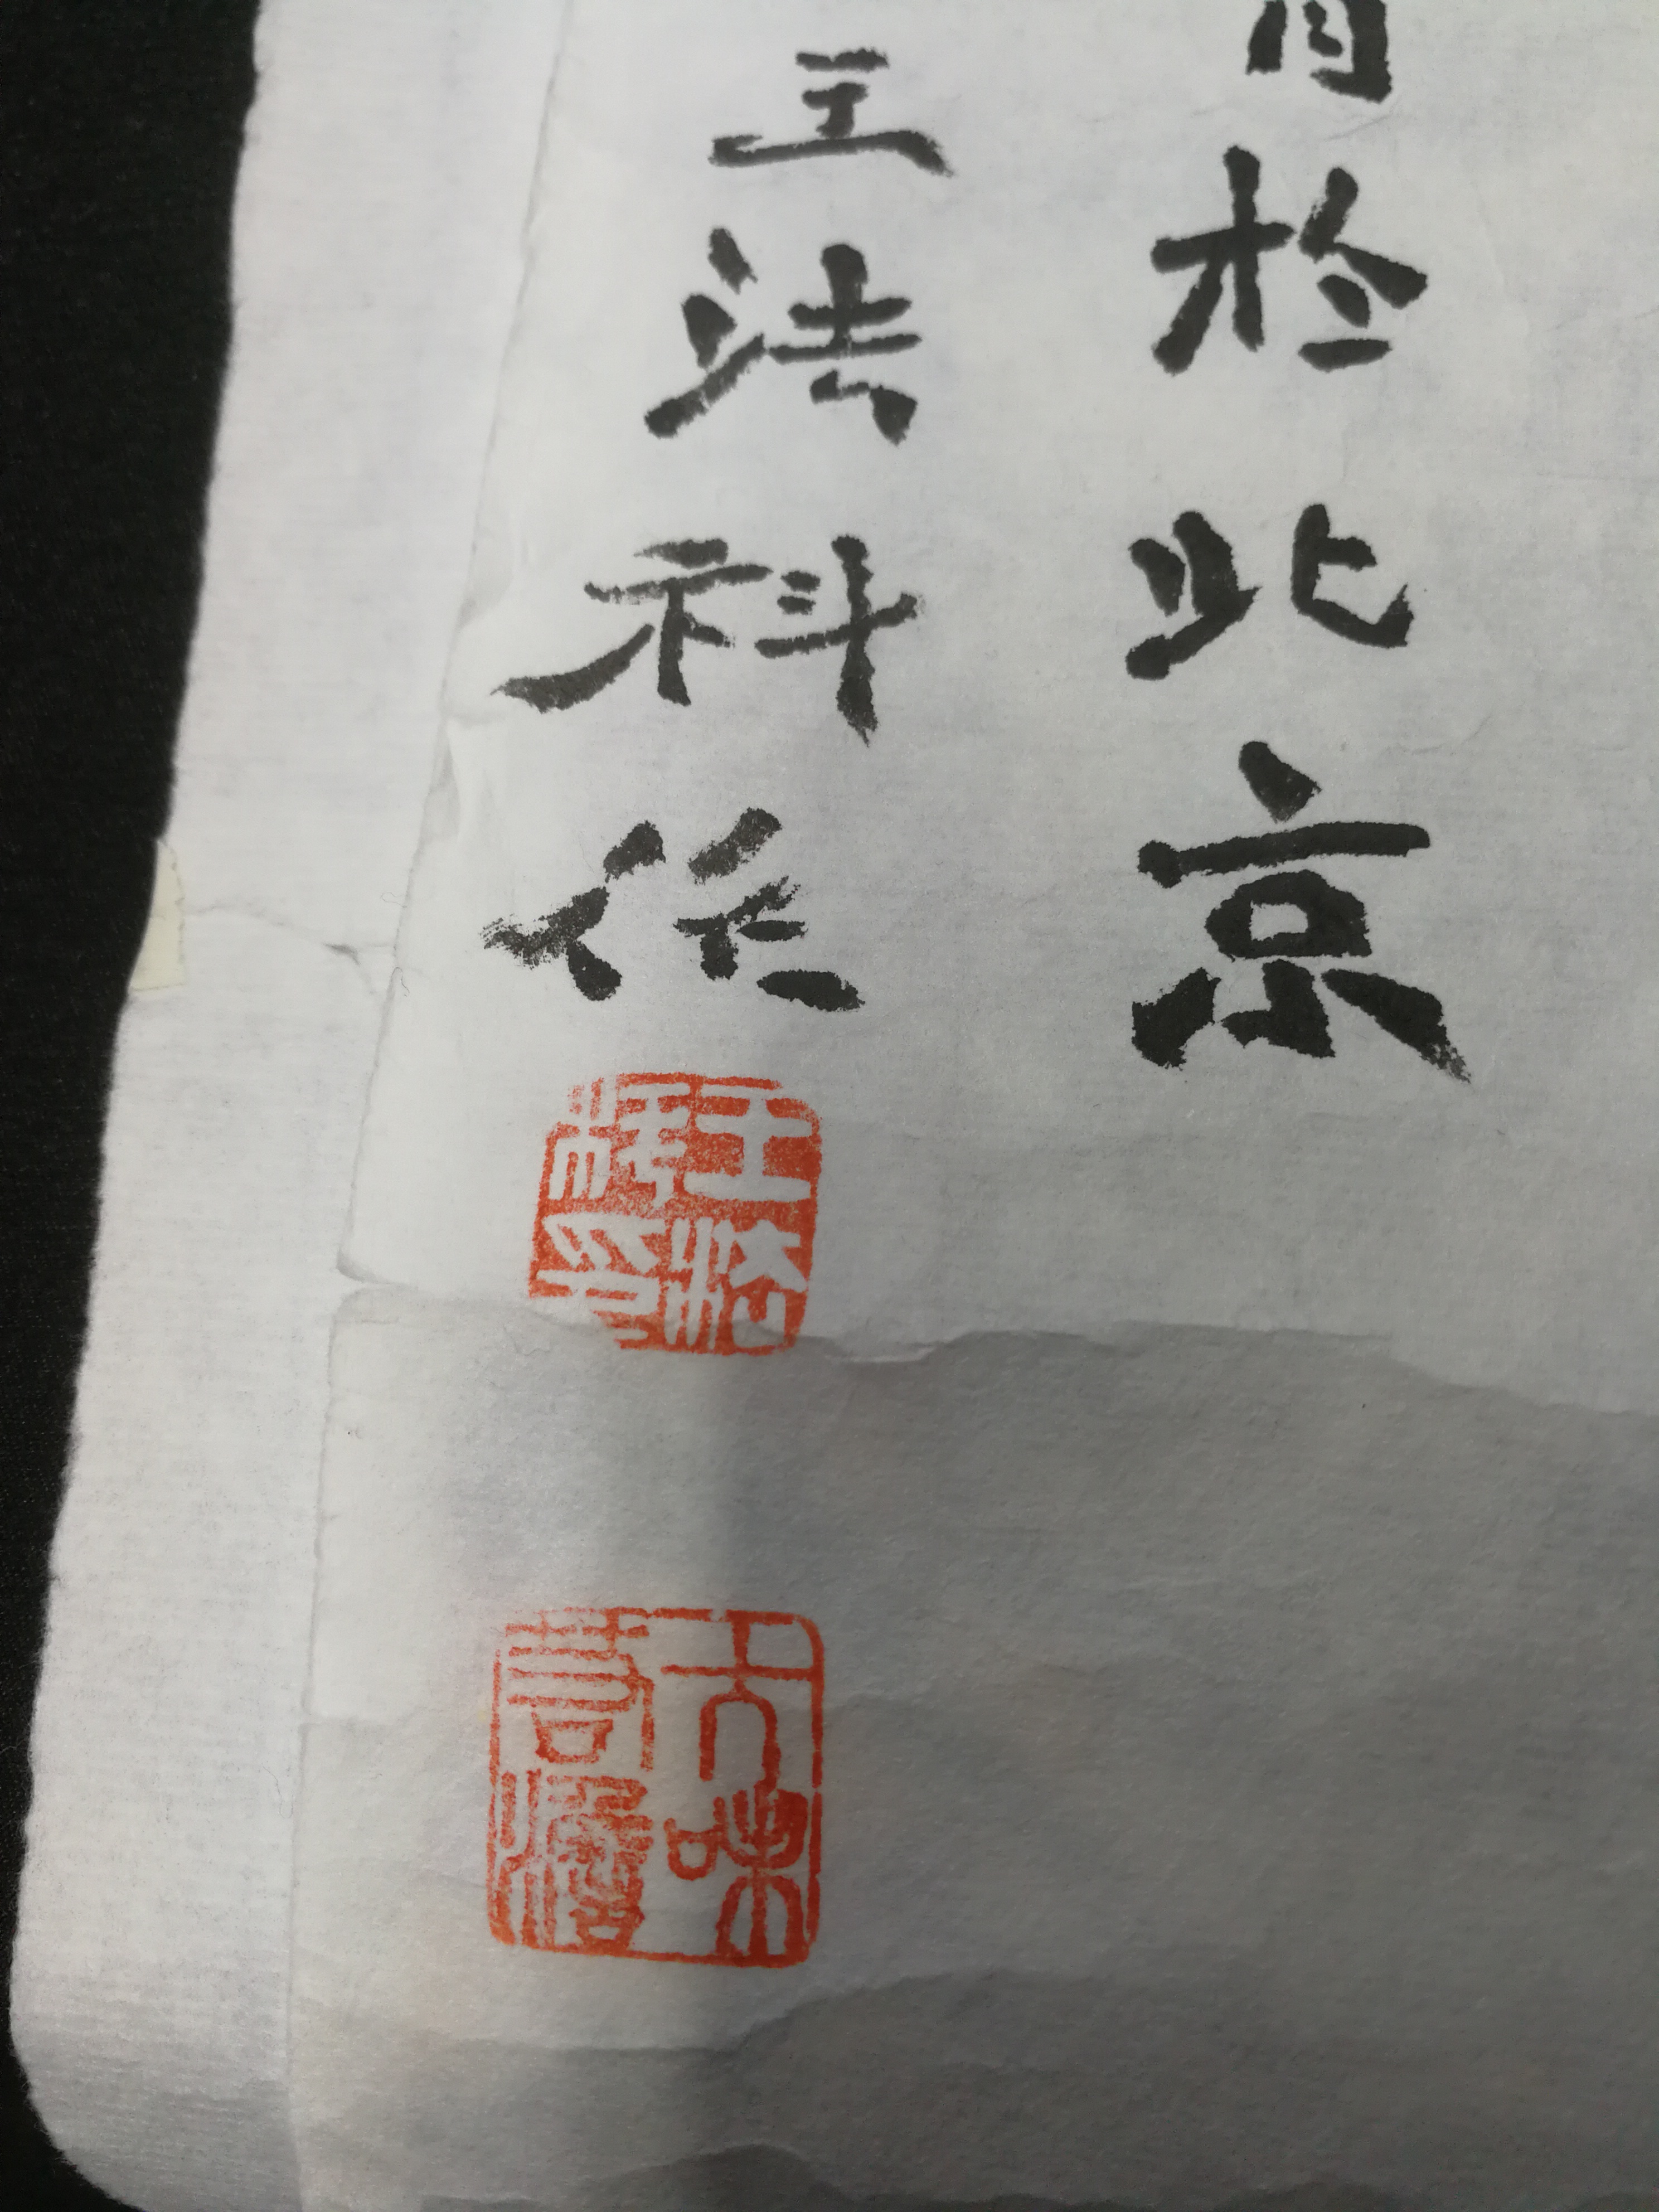 於北京
王法科作
王法科印
大味若澹